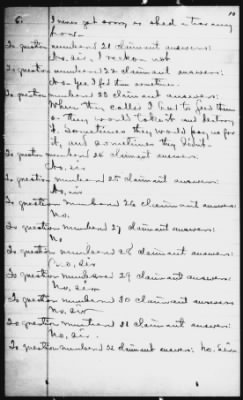 6.
10
I never got sorry or shed a tear my
how
To question numbered 21 claimant answers:
No, sir, I reckon not
To question numbered 22 claimant answers:
No. Yes I fed them sometimes.
To question numbered 23 claimant answers:
When they called I had to feed them
or they would take it and destroy
it. Sometimes they would pay me for
it, and sometimes they didn't.
To question numbered 24 claimant answers:
No, sir
To question numbered 25 claimant answers:
No, sir
To question numbered 26 claimant answers:
No.
To question numbered 27 claimant answers:
No
To question numbered 28 claimant answers:
No, sir
To question numbered 29 claimant answers:
No, sir
To question numbered 30 claimant answers
No, sir
To question numbered 31 claimant answers:
No, sir.
To question numbered 32 claimant answers: No, sir